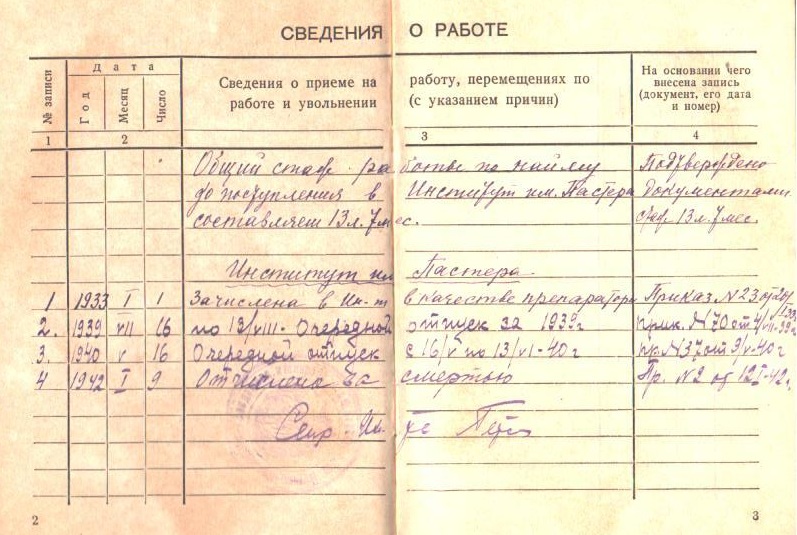 СВЕДЕНИЯ О РАБОТЕ
№ записи
Дата
Год
Месяц
Число
Сведения о приеме на работу, перемещениях по
работе и увольнении (с указанием причин)
На основании чего
внесена запись
(документ, его дата
и номер)
1 2 3 4
Общий стаж работы по найму Подтверждено
до поступления в Институт им. Пастера документами
составляет 13 л. 7 мес. стаж 13 л. 7 мес.
Институт им Пастера
1 1933 I 1 Зачислена в Ин-т в качестве препаратора Приказ N 23 от
2. 1939 VII 16 по 13/VIII - Очередной отпуск за 1939 г прик. N 70 от 4/VII-39 г
3. 1940 V 16 Очередной отпуск с 16/V по 13/VI-40 г пр. N 37 от 9/V-40 г
4 1942 I 9 Отчислена за смертью Пр. N 2 от 12 I-42 г.
Секр. Ин.
2
3